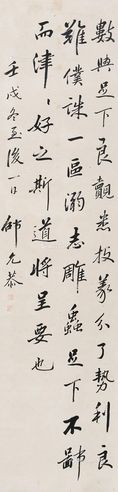 數與足下良覿悉於篆分了勢利良
難僕誅一區溺志雕蟲足下不鄙
而津〻好之斯道將呈要也
壬戌冬至後一日